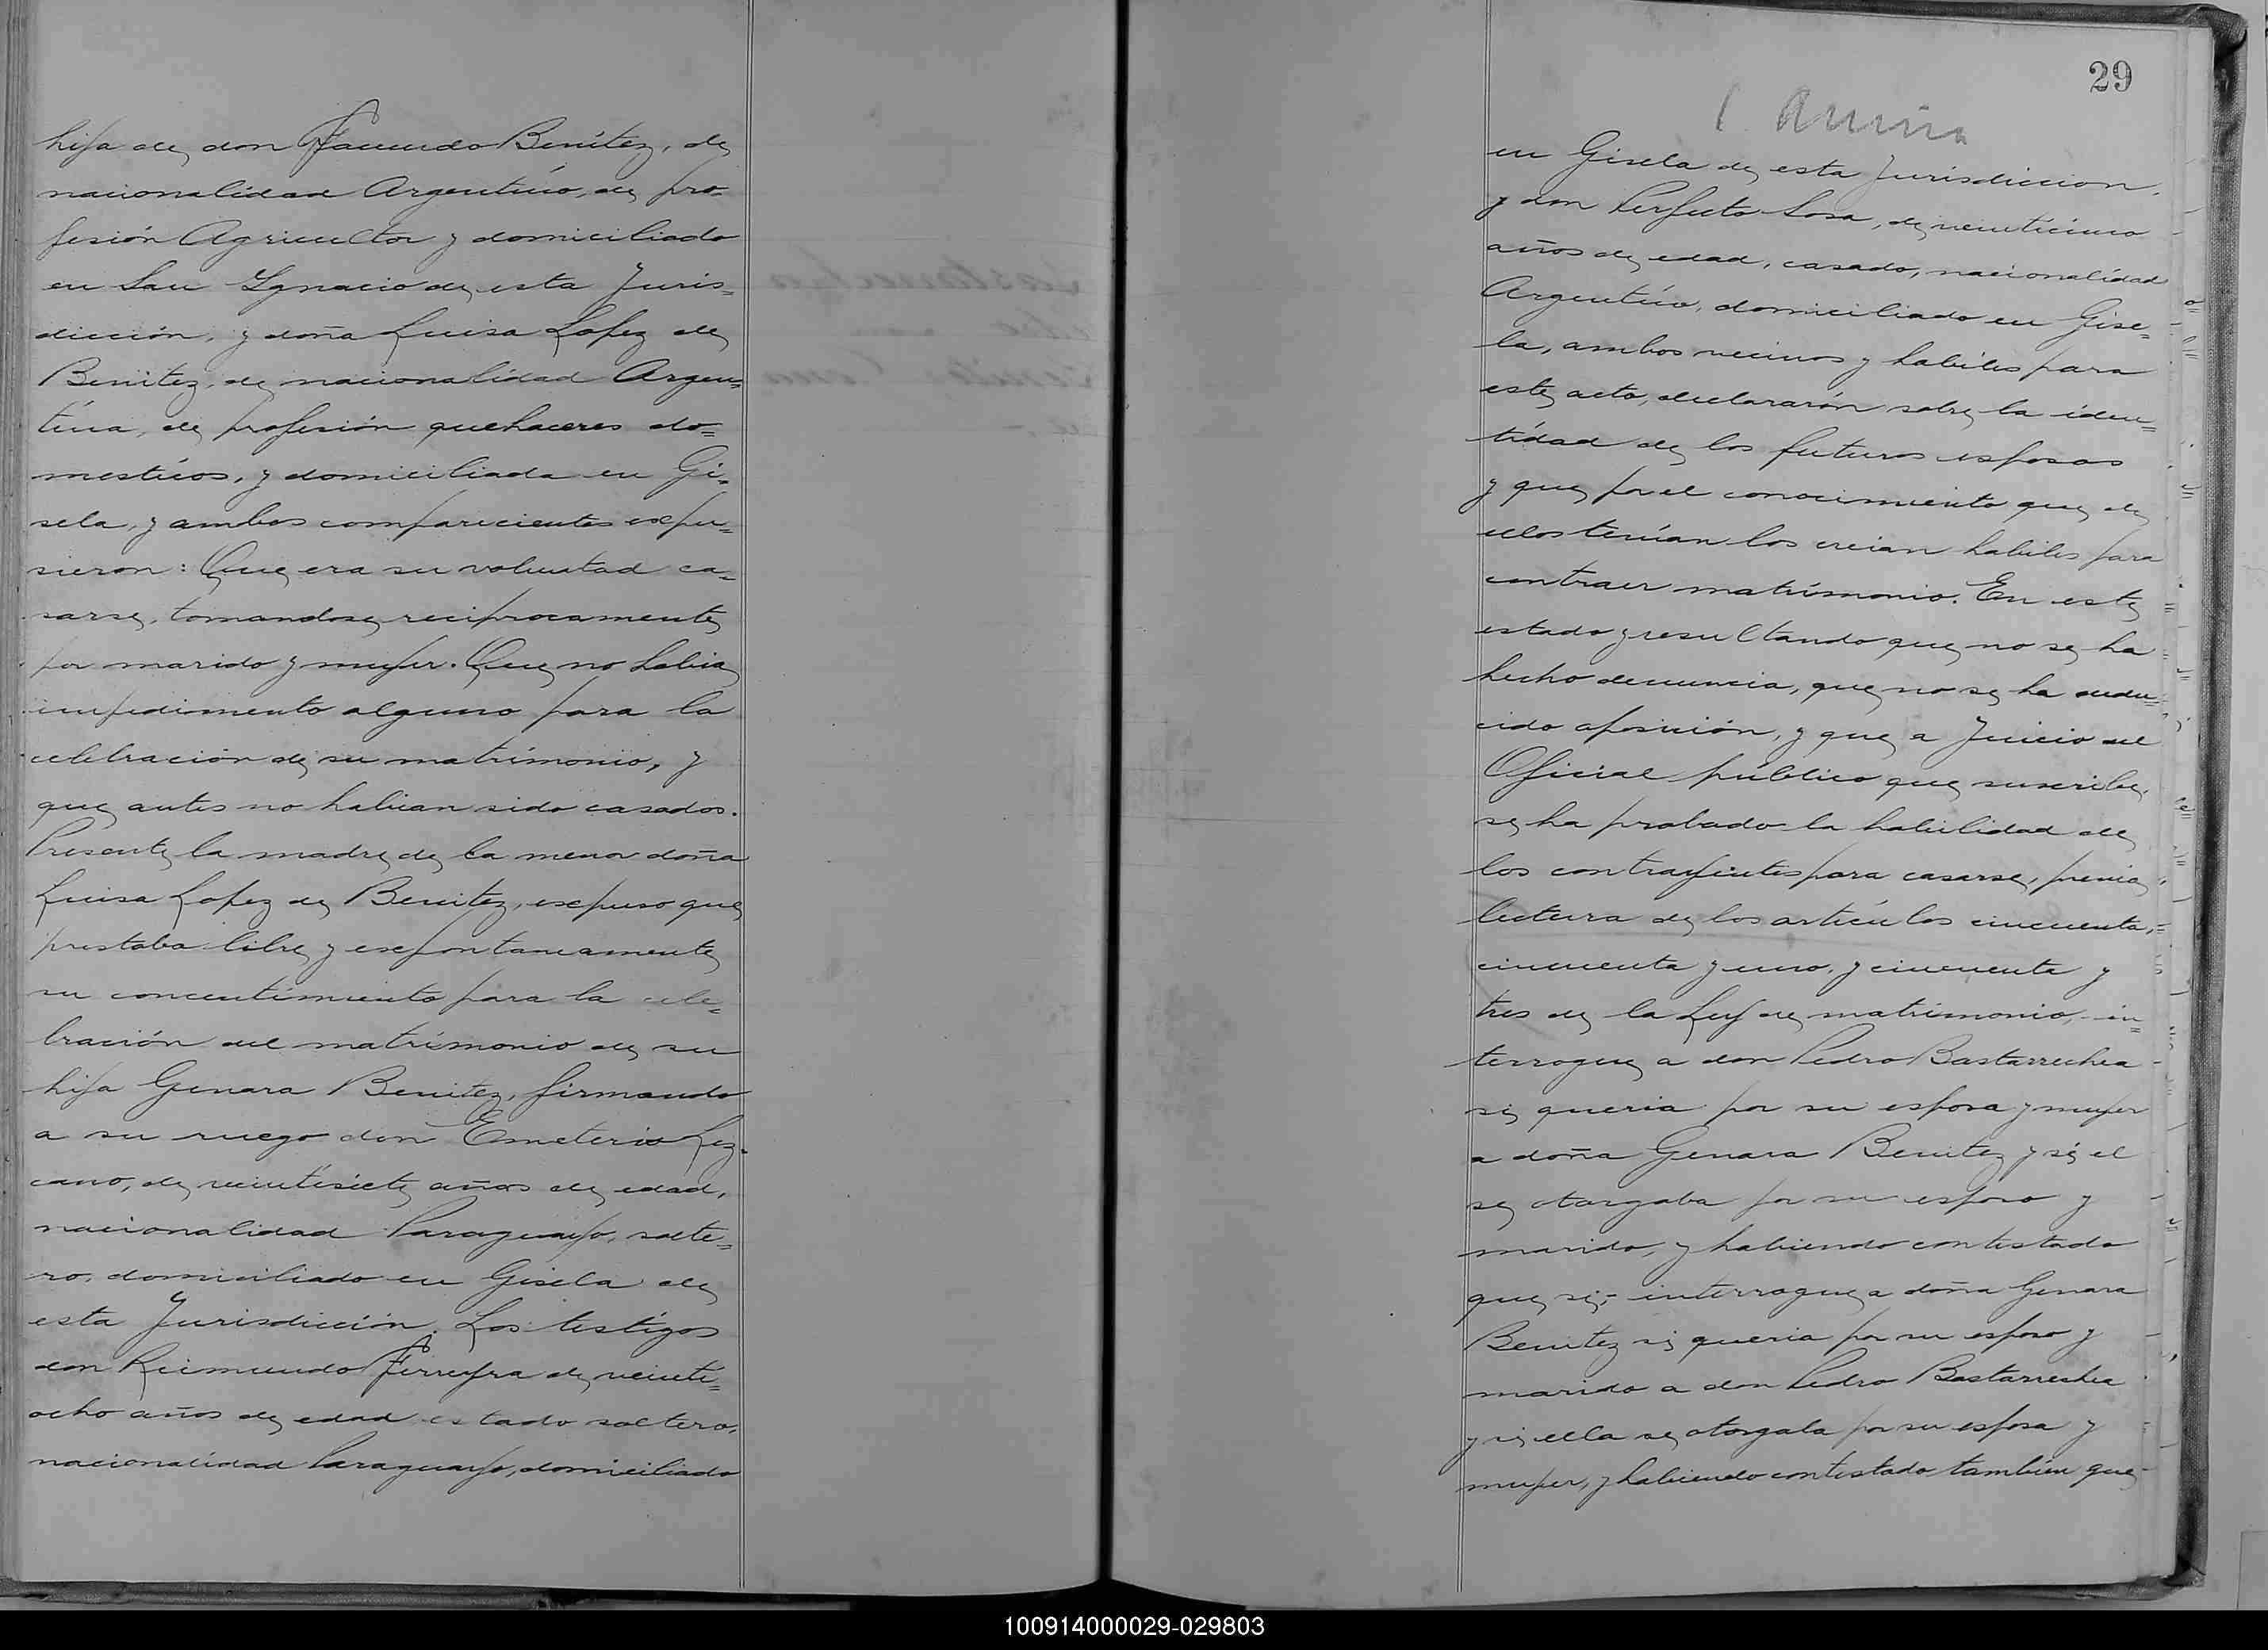 hija de don Facundo Benítez, de
nacionalidad Argentino, de pro=
fesión Agricultor y domiciliado
en San Ygnacio de esta Juris=
dicción, y doña Luisa Lopez de
Benitez, de nacionalidad Argen=
tina, de profesión quehaceres do=
mesticos, y domiciliada en Gi=
sela, y ambos comparecientes expu=
sieron: Que era su voluntad ca=
sarse, tomandose reciprocamente
por marido y mujer. Que no habia
impedimento alguno para la
celebración de su matrimonio, y
que antes no habian sido casados.
Presente la madre de la menor doña
Luisa Lopez de Benitez, expuso que
prestaba libre y expontaneamente
su concentimiento para la cele=
bración del matrimonio de su
hija Genara Benitez, firmando
a su ruego don Emeterio Lez=
cano, de veintisiete años de edad,
nacionalidad Paraguayo, solte=
ro, domiciliado en Gisela de
esta Jurisdicción. Los testigos
don Reimundo Ferreyra de veinti=
ocho años de edad estado soltero,
nacionalidad Paraguayo, domiciliado
29
en Gisela de esta Jurisdiccion,
y don Perfecto Sosa, de veinticinco
años de edad, casado, nacionalidad
Argentino, domiciliado en Gise=
la, ambos vecinos y habiles para
este acto, declararón sobre la iden=
tidad de los futuros esposos
y que por el conocimiento que de
ellos tenían los creian habiles para
contraer matrimonio. En este
estado y resultando que no se ha
hecho denuncia, que no se ha dedu=
cido oposición, y que a Juicio del
Oficial público que suscribe,
se ha probado la habilidad de
los contrayentes para casarse, previa
lectura de los artículos cincuenta,
cincuenta y uno, y cincuenta y
tres de la Ley de matrimonio, in=
terrogue a don Pedro Bastarrechea
si queria por su esposa y mujer
a doña Genara Benitez y si el
se otorgaba por su esposo y
marido, y habiendo contestado
que si;- interrogue a doña Genara
Benitez si queria por su esposo y
marido a don Pedro Bastarrechea
y si ella se otorgaba por su esposa y
mujer, y habiendo contestado también que
100914000029-029803